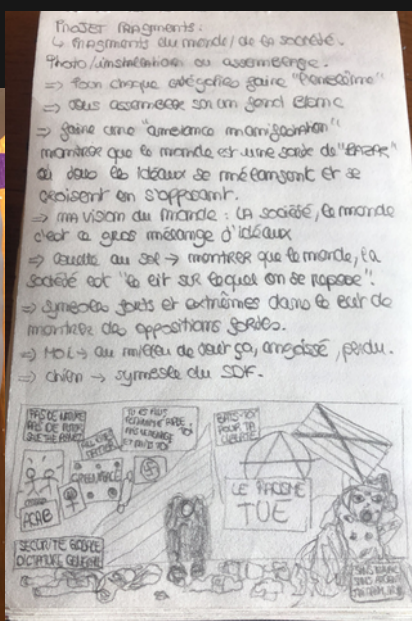 PROJET FRAGMENTS :
↳ FRAGMENTS du monde / de la société.
Photo/installation ou assemblage.
⇒ Pour chaque catégories faire
⇒ tous assembler sur un fond blanc
⇒ faire une "ambiance manifestation"
montrer que le monde est une sorte de "BAZAR"
où tous les idéaux se mélangent et se
croisent en s'opposant.
⇒ MA vision du monde : LA société, le monde
c'est ce gros mélange d'idéaux
⇒ couette au sol → montrer que le monde, la
société est "le lit sur lequel on se repose".
⇒ symboles forts et extrêmes dans le but de
montrer des oppositions fortes.
⇒ MOI → au milieu de tout ça, angoissé, perdu.
⇒ chien → symbole du SDF.
PAS DE NATURE
PAS DE FUTUR
GREENPEACE
ACAB
BATS-TOI
POUR TA
LIBERTÉ
LE RACISME
TUE
SÉCURITÉ GLOBALE
DICTATURE GÉNÉRALE
SANS
SANS ARGENT